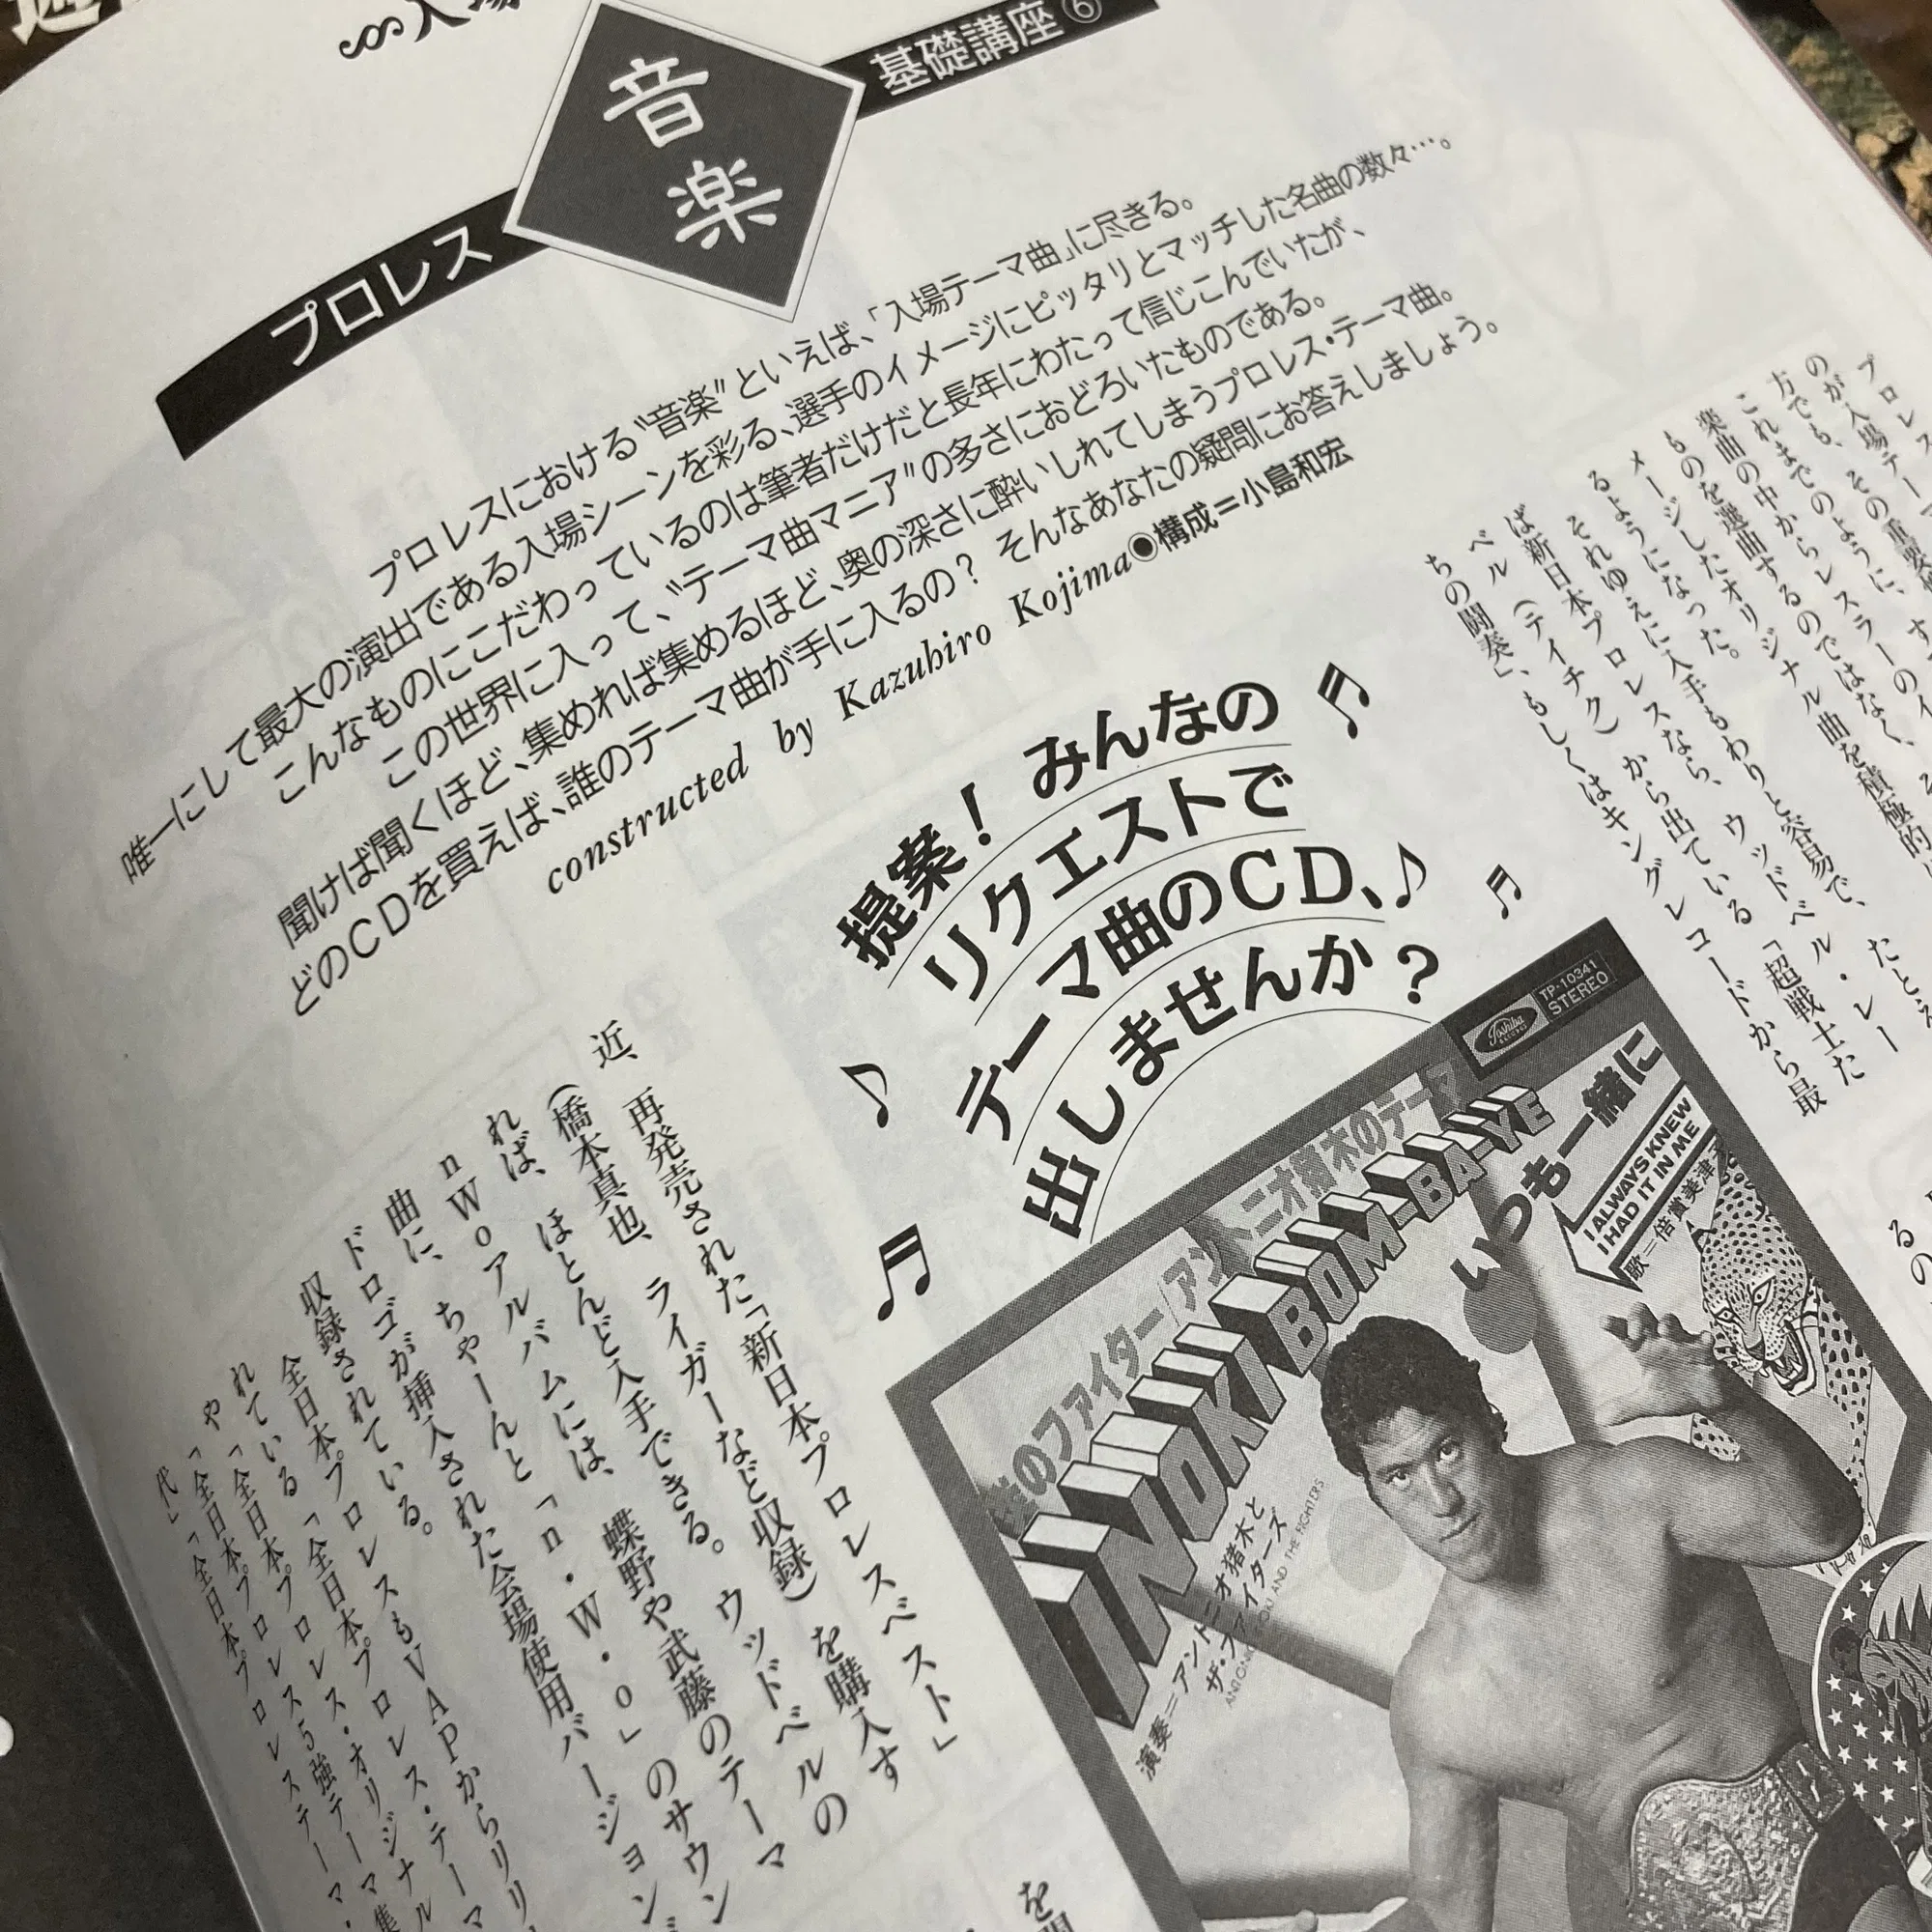 入場
プロレス
音楽
基礎講座⑥
プロレスにおける“音楽”といえば、「入場テーマ曲」に尽きる。
唯一にして最大の演出である入場シーンを彩る、選手のイメージにピッタリとマッチした名曲の数々…。
こんなものにこだわっているのは筆者だけだと長年にわたって信じこんでいたが、
この世界に入って、“テーマ曲マニア”の多さにおどろいたものである。
聞けば聞くほど、集めれば集めるほど、奥の深さに酔いしれてしまうプロレス・テーマ曲。
どのCDを買えば、誰のテーマ曲が手に入るの? そんなあなたの疑問にお答えしましょう。
constructed by Kazuhiro Kojima◉構成=小島和宏
提案! みんなの
リクエストで
テーマ曲のCD、
出しませんか?
プロレス
のが入場テーマ
方でも、その重要
これまでのように、す
楽曲の中からレスラーのイ
ものを選曲するのではなく、そ
メージしたオリジナル曲を積極的
るようになった。
それゆえに入手もわりと容易で、たとえ
ば新日本プロレスなら、ウッドベル・レー
ベル(テイチク)から出ている「超戦士た
ちの闘奏」、もしくはキングレコードから最
近、再発売された「新日本プロレスベスト」
(橋本真也、ライガーなど収録)を購入す
れば、ほとんど入手できる。ウッドベルの
nWoアルバムには、蝶野や武藤のテーマ
曲に、ちゃーんと「n・W・o」のサウン
ドロゴが挿入された会場使用バージョン
収録されている。
全日本プロレスもVAPからリリ
れている「全日本プロレス・テーマ
や「全日本プロレス・オリジナル
「全日本プロレス5強テーマ集
代」「全日本プロレステーマ・
TP-10341
STEREO
Toshiba
RECORDS
のファイター アントニオ猪木のテーマ
INOKI BOM-BA-YE
いつも一緒に
I ALWAYS KNEW
I HAD IT IN ME
歌=倍賞美津子
演奏=アントニオ猪木と
ザ・ファイターズ
るの
を